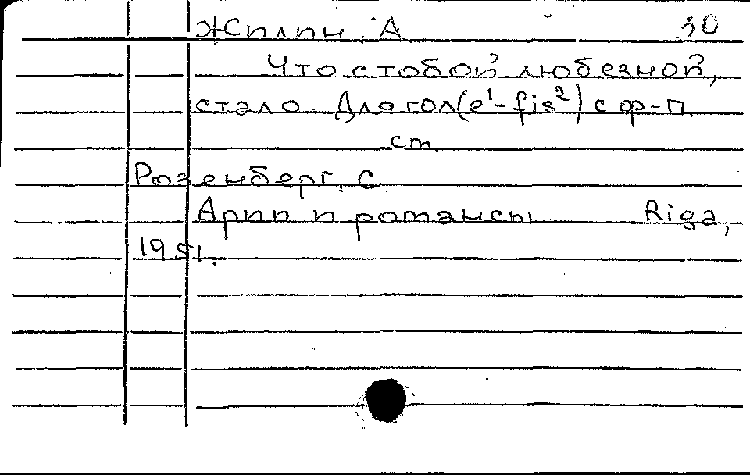 Жилин, А 30
Что с тобой любезной,
стало. Для гол(e¹-fis²) с ф-п.
см.
Розенберг, С
Арии и романсы Riga,
1951.